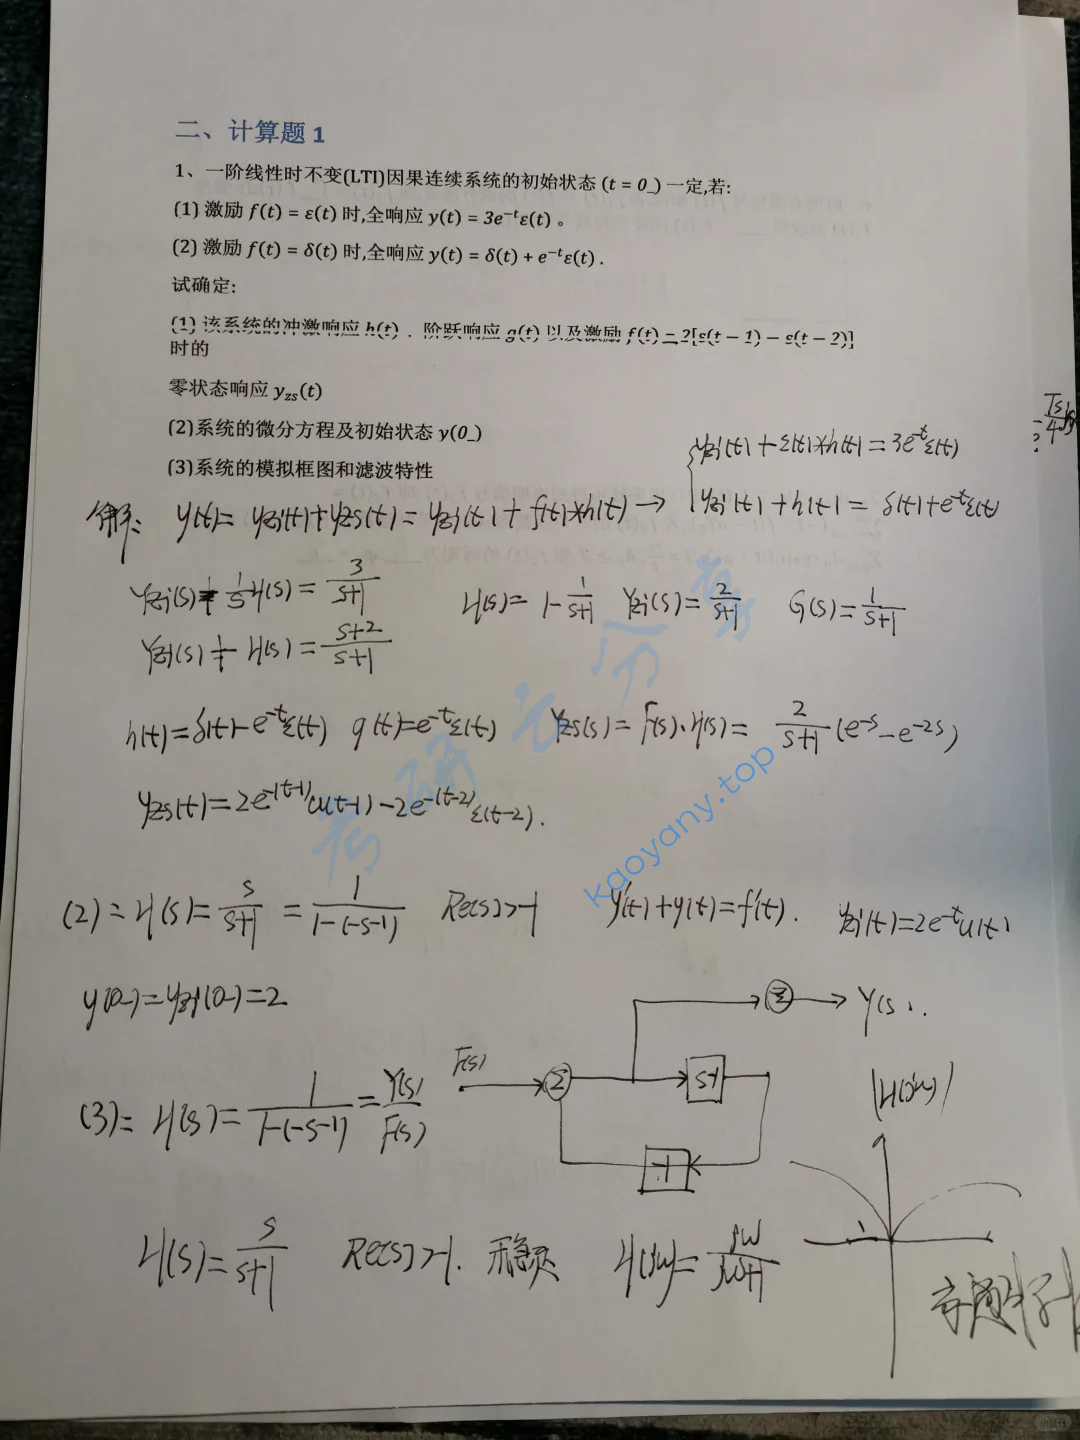 二、计算题 1
1、一阶线性时不变(LTI)因果连续系统的初始状态 (t = 0_) 一定,若:
(1) 激励 f(t) = ε(t) 时,全响应 y(t) = 3e^{-t}ε(t) 。
(2) 激励 f(t) = δ(t) 时,全响应 y(t) = δ(t) + e^{-t}ε(t) .
试确定:
(1) 该系统的冲激响应 h(t) . 阶跃响应 g(t) 以及激励 f(t) = 2[ε(t − 1) − ε(t − 2)]
时的
零状态响应 y_{zs}(t)
(2)系统的微分方程及初始状态 y(0_)
(3)系统的模拟框图和滤波特性
yzi(t) + ε(t)*h(t) = 3e^{-t}ε(t)
解: y(t) = yzi(t) + yzs(t) = yzi(t) + f(t)*h(t) → yzi(t) + h(t) = δ(t) + e^{-t}ε(t)
Yzi(s) + 1/s H(s) = 3/(s+1)
H(s) = 1 - 1/(s+1) Yzi(s) = 2/(s+1) G(s) = 1/(s+1)
Yzi(s) + H(s) = (s+2)/(s+1)
h(t) = δ(t) - e^{-t}ε(t) g(t) = e^{-t}ε(t) Yzs(s) = F(s)·H(s) = 2/(s+1) (e^{-s} - e^{-2s})
yzs(t) = 2e^{-(t-1)}u(t-1) - 2e^{-(t-2)}ε(t-2).
(2) = H(s) = s/(s+1) = 1/(1-(-s-1)) Re(s)>-1 y'(t) + y(t) = f'(t). yzi(t) = 2e^{-t}u(t)
y(0-) = yzi(0-) = 2
Σ → Y(s).
F(s) Σ s-1
-1
(3) = H(s) = 1/(1-(-s-1)) = Y(s)/F(s)
|H(jω)|
H(s) = s/(s+1) Re(s)>-1. 稳定 H(jω) = jω/(jω+1)
考研云分享
kaoyany.top